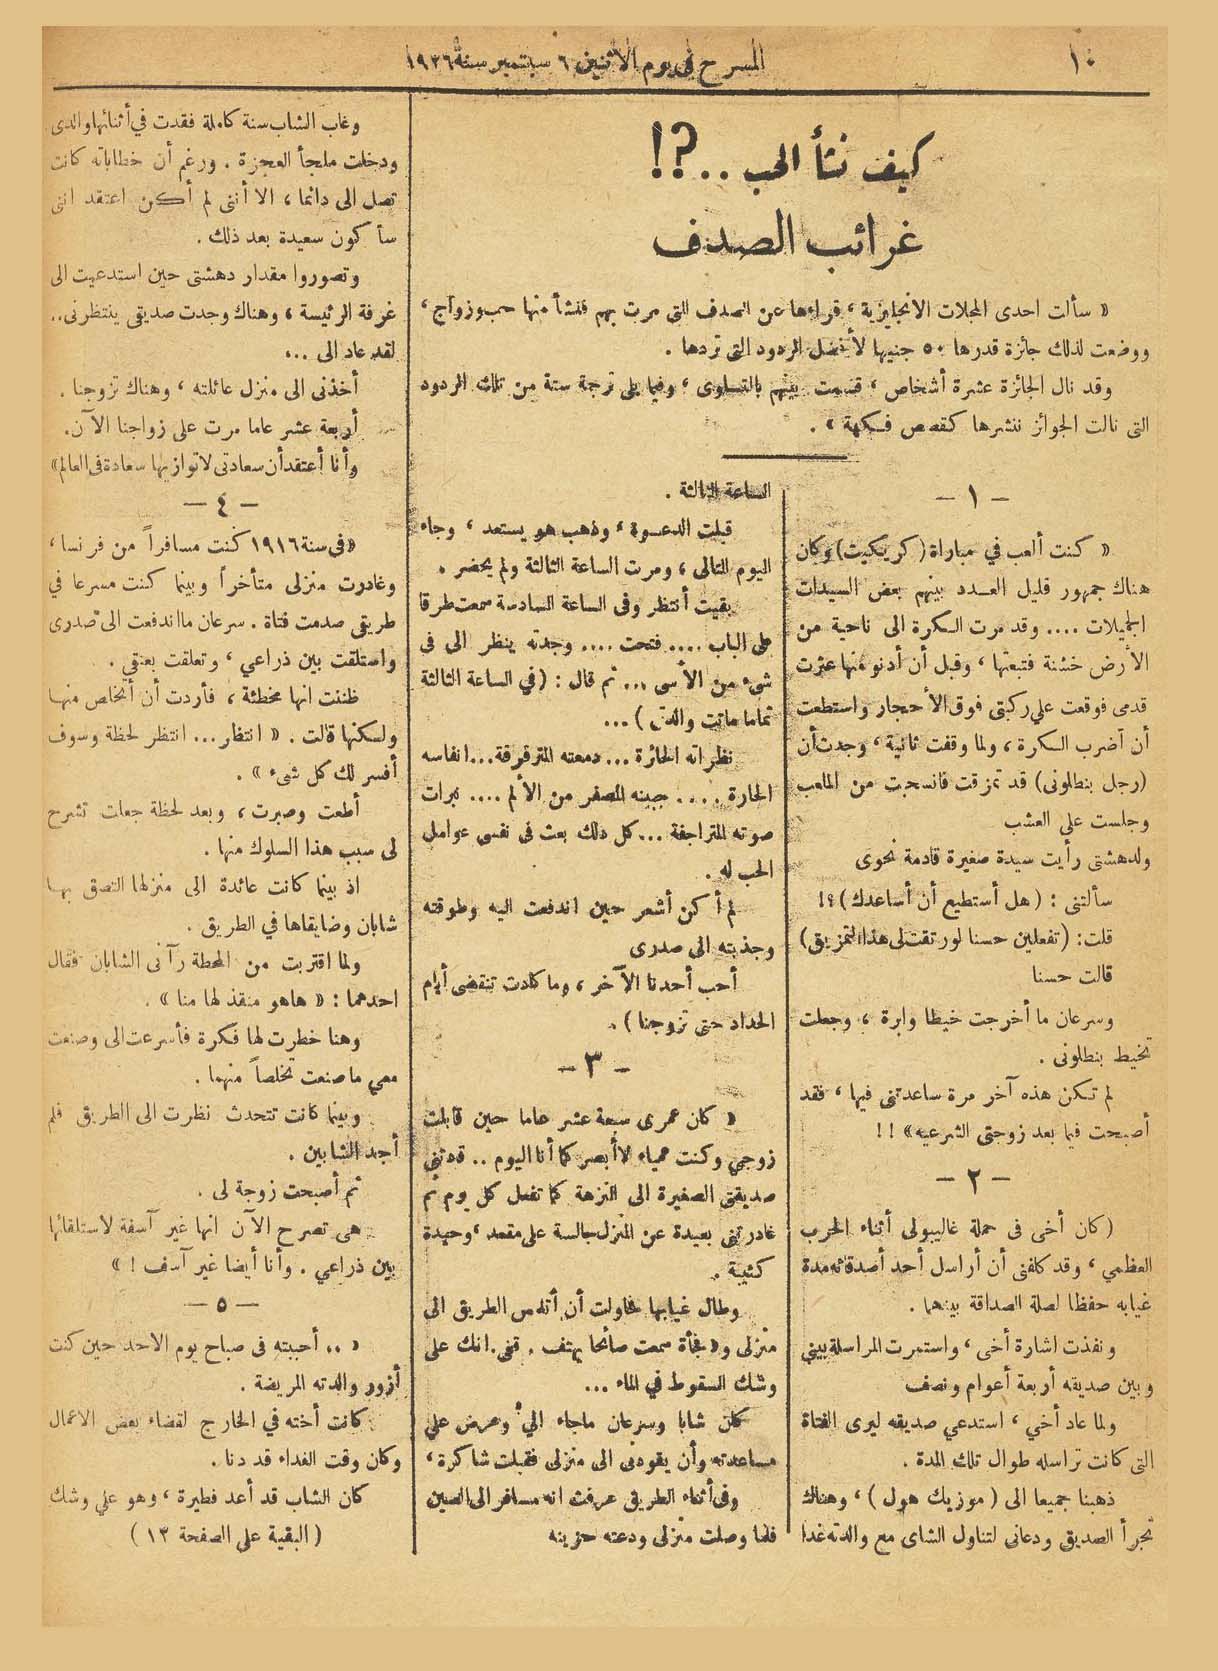 ١٠
المسرح في يوم الاثنين ٦ سبتمبر سنة ١٩٢٦
كيف نشأ الحب ..؟!
غرائب الصدف
« سألت احدى المجلات الانجليزية ، قراءها عن الصدف التى مرت بهم فنشأ منها حب وزواج ،
ووضعت لذلك جائزة قدرها ٥٠ جنيها لأفضل الردود التى تردها .
وقد نال الجائزة عشرة أشخاص ، قسمت بينهم بالتساوى ، وفيما يلى ترجمة ستة من تلك الردود
التى نالت الجوائز ننشرها كقصص فكهة » .
— ١ —
« كنت ألعب في مباراة (كريكيت) وكان
هناك جمهور قليل العدد بينهم بعض السيدات
الجميلات .... وقد مرت الكرة الى ناحية من
الأرض خشنة فتبعتها ، وقبل أن أدنو منها عثرت
قدمى فوقعت على ركبتى فوق الأحجار واستطعت
أن أضرب الكرة ، ولما وقفت ثانية ، وجدت أن
(رجل بنطلونى) قد تمزقت فانسحبت من الملعب
وجلست على العشب
ولدهشتى رأيت سيدة صغيرة قادمة نحوى
سألتنى : (هل أستطيع أن أساعدك)؟!
قلت: (تفعلين حسنا لو رتقت لى هذا التمزيق)
قالت حسنا
وسرعان ما أخرجت خيطا وابرة ، وجعلت
تخيط بنطلونى .
لم تكن هذه آخر مرة ساعدتنى فيها ، فقد
أصبحت فيما بعد زوجتى الشرعيه» !!
— ٢ —
(كان أخى فى حملة غاليبولى أثناء الحرب
العظمي ، وقد كلفنى أن أراسل أحد أصدقائه مدة
غيابه حفظا لصلة الصداقة بينهما .
ونفذت اشارة أخى ، واستمرت المراسلة بيني
وبين صديقه أربعة أعوام ونصف
ولما عاد أخي ، استدعي صديقه ليرى الفتاة
التى كانت تراسله طوال تلك المدة .
ذهبنا جميعا الى (موزيك هول) ، وهناك
تجرأ الصديق ودعانى لتناول الشاى مع والدته غدا
الساعة الثالثة .
قبلت الدعوة ، وذهب هو يستعد ، وجاء
اليوم التالى ، ومرت الساعة الثالثة ولم يحضر .
بقيت أنتظر وفى الساعة السادسة سمعت طرقا
على الباب .... فتحت .... وجدته ينظر الى فى
شىء من الأسى ... ثم قال : (في الساعة الثالثة
تماما ماتت والدتى) ...
نظراته الحائرة ... دمعته المترقرقة ... انفاسه
الحارة .... جبينه المصفر من الألم .... نبرات
صوته المتراجفة ... كل ذلك بعث فى نفسى عوامل
الحب له .
لم أكن أشعر حين اندفعت اليه وطوقته
وجذبته الى صدرى
أحب أحدنا الآخر ، وما كادت تنقضى أيام
الحداد حتى تزوجنا) .
— ٣ —
« كان عمرى سبعة عشر عاما حين قابلت
زوجي وكنت عمياء لا أبصر كما أنا اليوم .. قادتنى
صديقتى الصغيرة الى النزهة كما تفعل كل يوم ثم
غادرتنى بعيدة عن المنزل جالسة على مقعد ، وحيدة
كئيبة .
وطال غيابها فحاولت أن أتلمس الطريق الى
منزلى وفجأة سمعت صائحا يهتف . قفى . انك على
وشك السقوط في الماء ...
كان شابا وسرعان ماجاء الي وعرض علي
مساعدته وأن يقودنى الى منزلى فقبلت شاكرة ،
وفى أثناء الطريق عرفت انه مسافر الى الصين
فلما وصلت منزلى ودعته حزينه
وغاب الشاب سنة كاملة فقدت في أثنائها والدى
ودخلت ملجأ العجزة . ورغم أن خطاباته كانت
تصل الى دائما ، الا أننى لم أكن اعتقد اننى
سأكون سعيدة بعد ذلك .
وتصوروا مقدار دهشتى حين استدعيت الى
غرفة الرئيسة ، وهناك وجدت صديقى ينتظرنى ..
لقد عاد الى ...
أخذنى الى منزل عائلته ، وهناك تزوجنا .
أربعة عشر عاما مرت على زواجنا الآن.
وأنا أعتقد أن سعادتى لاتوازيها سعادة فى العالم»
— ٤ —
«فى سنة ١٩١٦ كنت مسافراً من فرنسا ،
وغادرت منزلى متأخراً وبينما كنت مسرعا في
طريقى صدمت فتاة . سرعان ما اندفعت الى صدرى
واستلقت بين ذراعي ، وتعلقت بعنقي .
ظننت انها مخطئة ، فأردت أن أتخلص منها
ولكنها قالت . « انتظار ... انتظر لحظة وسوف
أفسر لك كل شىء » .
أطعت وصبرت ، وبعد لحظة جعلت تشرح
لى سبب هذا السلوك منها .
اذ بينما كانت عائدة الى منزلها التصق بها
شابان وضايقاها في الطريق .
ولما اقتربت من المحطة رآنى الشابان فقال
احدهما : « هاهو منقذ لها منا » .
وهنا خطرت لها فكرة فأسرعت الى وصنعت
معي ما صنعت تخلصاً منهما .
وبينما كانت تتحدث نظرت الى الطريق فلم
أجد الشابين .
ثم أصبحت زوجة لى .
هى تصرح الآن انها غير آسفة لاستلقائها
بين ذراعي . وأنا أيضا غير آسف ! »
— ٥ —
« .. أحببته فى صباح يوم الاحد حين كنت
أزور والدته المريضة .
كانت أخته في الخارج لقضاء بعض الاعمال
وكان وقت الغداء قد دنا .
كان الشاب قد أعد فطيرة ، وهو علي وشك
( البقية على الصفحة ١٣ )